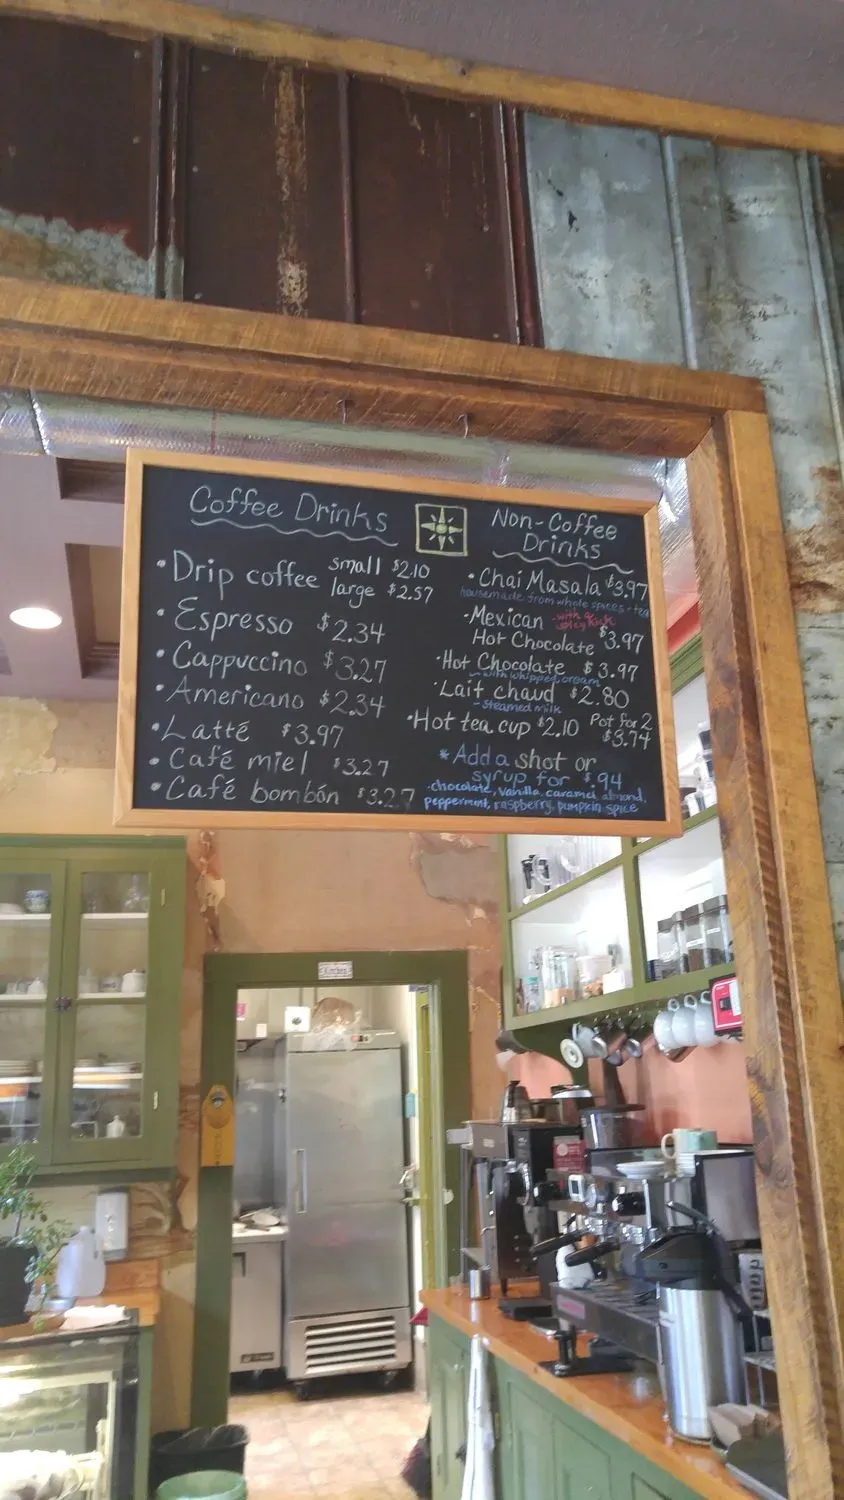 Coffee Drinks
• Drip coffee small $2.10
large $2.57
• Espresso $2.34
• Cappuccino $3.27
• Americano $2.34
• Latté $3.97
• Café miel $3.27
• Café bombón $3.27
Non-Coffee
Drinks
• Chai Masala $3.97
housemade from whole spices + tea
• Mexican - with a
spicy kick
Hot Chocolate $3.97
• Hot Chocolate $3.97
- with whipped cream
• Lait chaud $2.80
- steamed milk
• Hot tea cup $2.10 Pot for 2
$3.74
* Add a shot or
syrup for $.94
• chocolate, vanilla, caramel, almond,
peppermint, raspberry, pumpkin spice
Kitchen